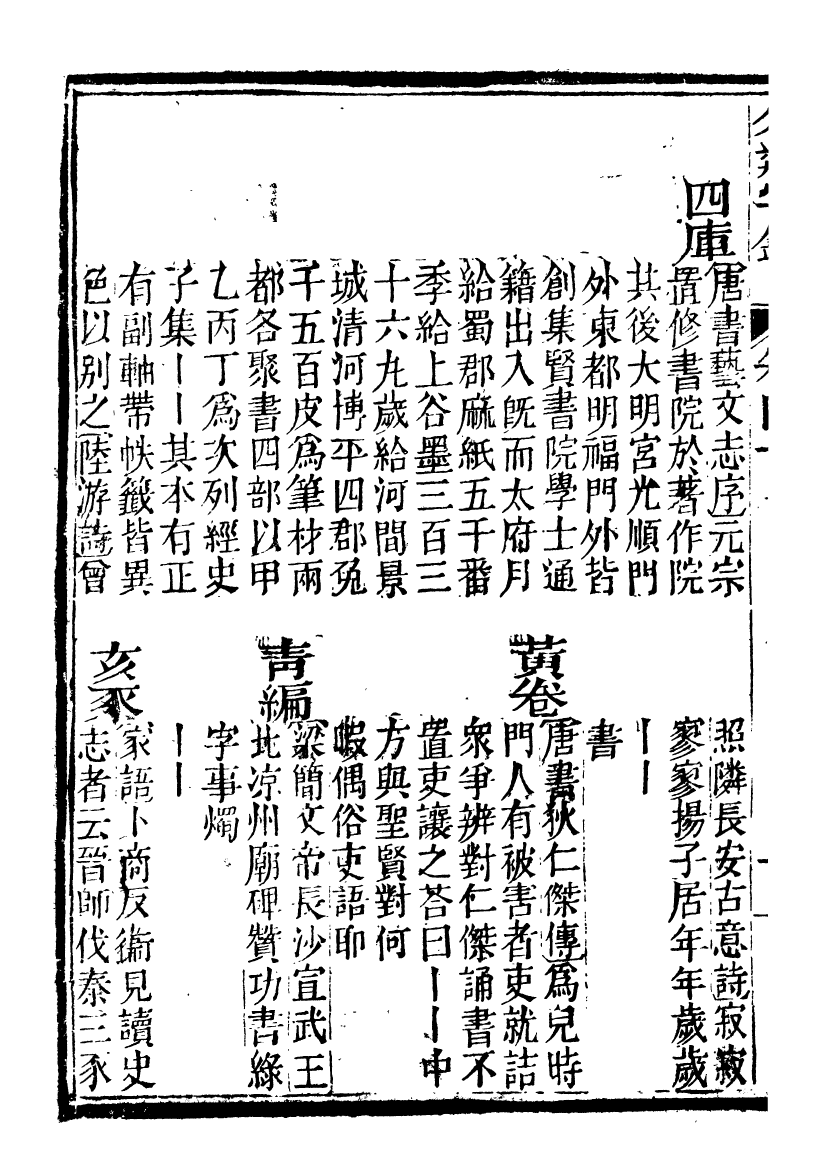 四庫
唐書藝文志序元宗
置修書院於著作院
其後大明宮光順門
外東都明福門外皆
創集賢書院學士通
籍出入旣而太府月
給蜀郡麻紙五千番
季給上谷墨三百三
十六丸歲給河間景
城清河博平四郡兔
千五百皮爲筆材兩
都各聚書四部以甲
乙丙丁爲次列經史
子集丨丨其本有正
有副軸帶帙籤皆異
色以別之陸游詩曾
照隣長安古意詩寂寂
寥寥揚子居年年歲歲
丨丨
書
黃卷
唐書狄仁傑傳爲兒時
門人有被害者吏就詰
衆爭辨對仁傑誦書不
置吏讓之荅曰丨丨中
方與聖賢對何
暇偶俗吏語耶
青編
梁簡文帝長沙宣武王
北凉州廟碑贊功書綠
字事燭
丨丨
亥豕
家語卜商反衞見讀史
志者云晉師伐秦三豕